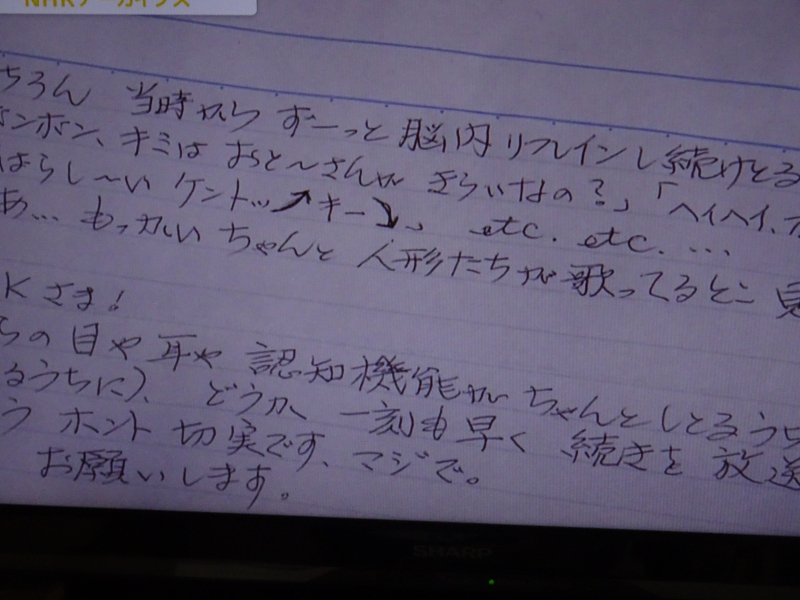 NHKアーカイブス
ちろん 当時から ずーっと 脳内リフレインし続けとる
ボンボン、キミは おと〜さんが きらいなの?」「ヘイヘイ、
ばらし〜い ケントッ↗キー↘、etc. etc. ...
あ... もっかい ちゃんと 人形たちが歌ってるとこ 見
Kさま!
らの 目や 耳や 認知機能が ちゃんとしとるうち
るうちに)、どうか 一刻も早く 続きを 放送
う ホント 切実です、マジで。
お願いします。
SHARP